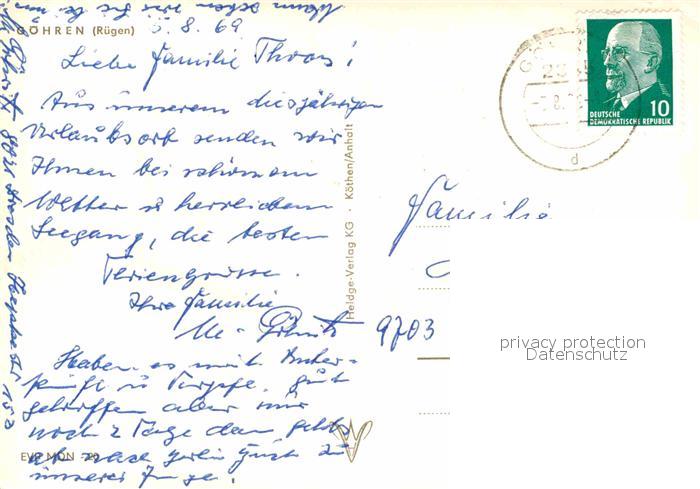 GÖHREN (Rügen)
5.8.69
Liebe Familie Thoms!
Aus unserem diesjährigen
Urlaubsort senden wir
Ihnen bei schönem
Wetter u herrlichem
Seegang, die besten
Feriengrüsse.
Ihre Familie
Haben es mit Unter-
kunft u Verpfl. gut
getroffen aber nur
noch 2 Tage dann gehts
unserer
EVP MDN
Heldge-Verlag KG · Köthen/Anhalt
DEUTSCHE
DEMOKRATISCHE REPUBLIK
10
d
Familie
9703
privacy protection
Datenschutz